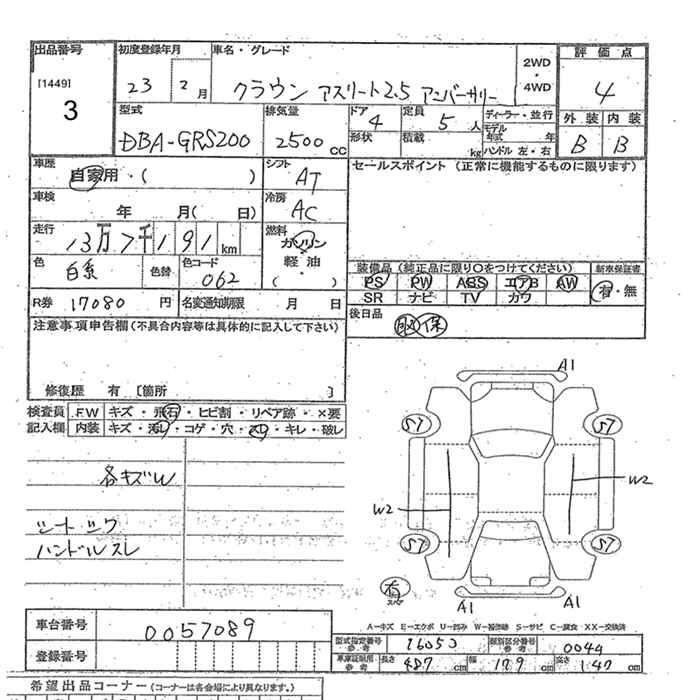 出品番号 初度登録年月 車名・グレード 評価点
[1449] 3 23 2月 クラウン アスリート2.5 アニバーサリー 2WD・4WD 4
型式 排気量 ドア 定員 ディーラー・並行 外装 内装
DBA-GRS200 2500cc 4 5人 モデル年式 年 B B
形状 積載 kg ハンドル 左・右
車歴 自家用・( ) シフト AT セールスポイント(正常に機能するものに限ります)
車検 年 月( 日) 冷房 AC
走行 13万7千191km 燃料 ガソリン・軽油・( )
色 白系 色替 色コード 062
装備品(純正品に限り○をつけてください) 新車保証書
PS PW ABS エアB AW 有・無
SR ナビ TV カワ
R券 17080円 名変通知期限 月 日 後日品 取 保
注意事項申告欄(不具合内容等は具体的に記入して下さい)
修復歴 有 [箇所 ]
検査員 FW キズ・飛石・ヒビ割・リペア跡・×要
記入欄 内装 キズ・汚れ・コゲ・穴・スレ・キレ・破レ
A1
S7 S7
各キズW
W2
W2
シートシワ
ハンドルスレ
S7 S7
有 スペア
A1 A1
A-キズ E-エクボ U-凹み W-補修跡 S-サビ C-腐食 XX-交換済
車台番号 0057089
型式指定番号 参考 16053 類別区分番号 参考 0044
登録番号
車庫証明用 参考 長さ 487cm 幅 179cm 高さ 147cm
希望出品コーナー(コーナーは各会場により異なります)